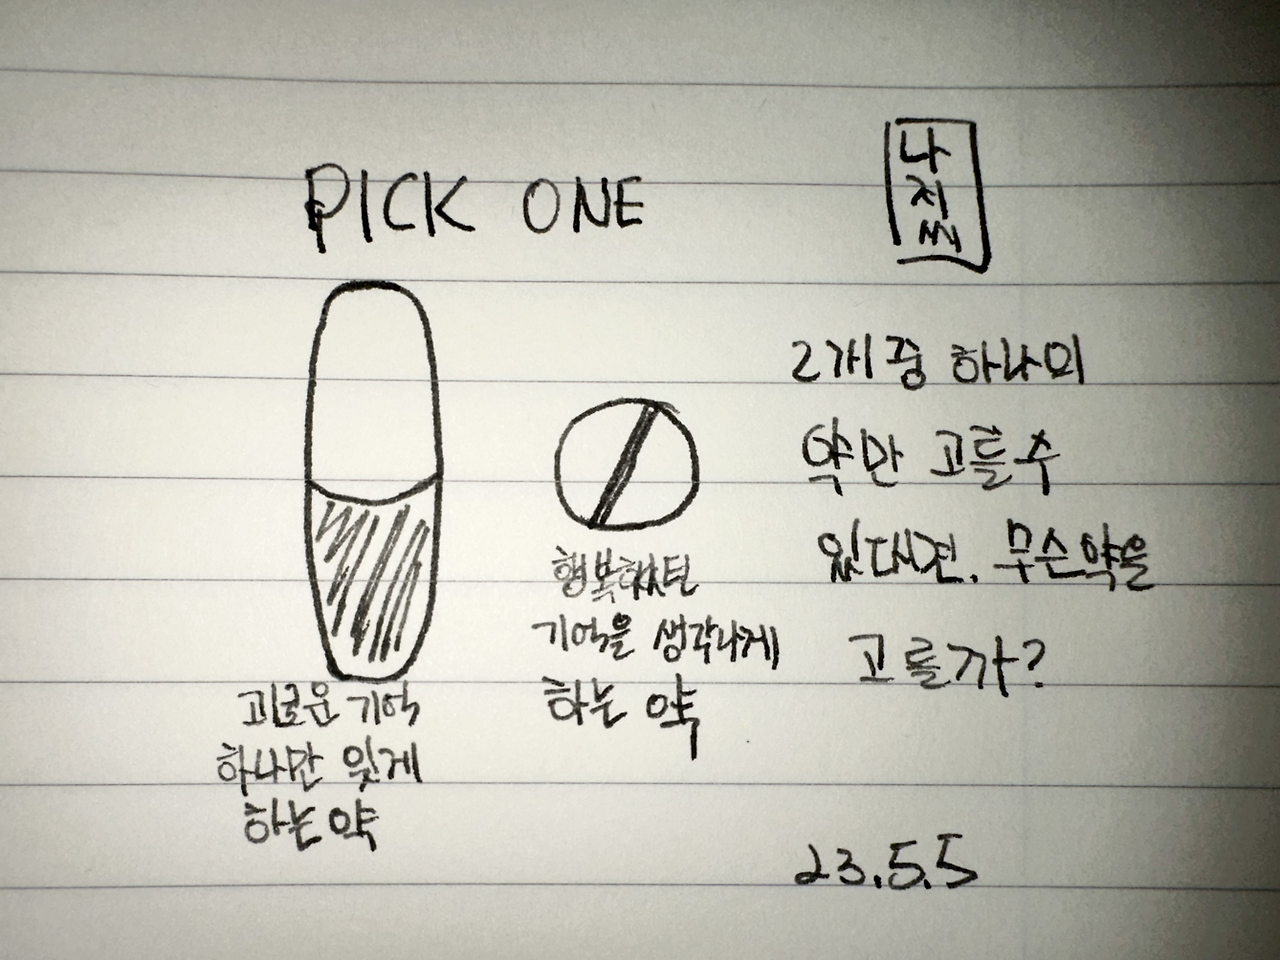 PICK ONE
나
지
씨
2개중 하나의
약만 고를수
있다면. 무슨약을
고를까?
괴로운 기억
하나만 잊게
하는 약
행복했던
기억을 생각나게
하는 약
23.5.5